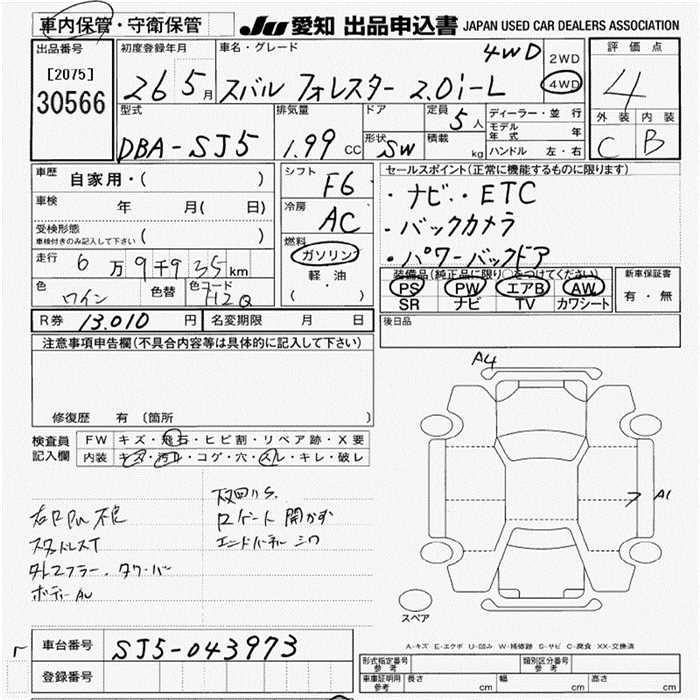 車内保管・守衛保管 JU愛知 出品申込書 JAPAN USED CAR DEALERS ASSOCIATION
出品番号 初度登録年月 車名・グレード 4WD 2WD 評価点
[2075] 26 5月 スバル フォレスター 2.0i-L 4WD 4
30566
型式 排気量 ドア 定員 5人 ディーラー・並行 外装 内装
モデル年式 年
DBA-SJ5 1.99 CC 形状 SW 積載 kg ハンドル 左・右 C B
車歴 自家用・( ) シフト F6 セールスポイント(正常に機能するものに限ります)
車検 年 月( 日) 冷房 AC ・ナビ・・ETC
受検形態 ( ) ・バックカメラ
車検付きのみ記入して下さい
燃料 ガソリン ・パワーバックドア
走行 6万9千935km 軽油 装備品(純正品に限り○をつけてください) 新車保証書
色 ワイン 色替 色コード H2Q ( ・ ) PS PW エアB AW 有・無
SR ナビ TV カワシート
R券 13,010 円 名変期限 月 日 後日品
注意事項申告欄(不具合内容等は具体的に記入して下さい)
A4
修復歴 有 (箇所 )
検査員 FW キズ・飛石・ヒビ割・リペア跡・X要
記入欄 内装 キズ・汚れ・コゲ・穴・スレ・キレ・破レ
A1
開かず
スタッドレスT エンドパーネル シワ
スペア
車台番号 SJ5-043973
A-キズ E-エクボ U-凹み W-補修跡 S-サビ C-腐食 XX-交換済
登録番号 形式指定番号 参考 類別区分番号 参考
車庫証明用 参考 長さ cm 幅 cm 高さ cm